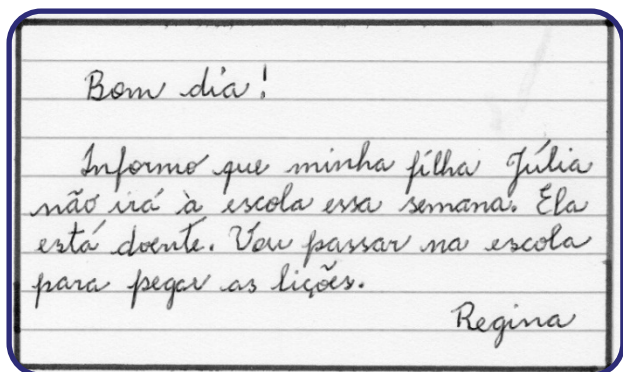 Bom dia!
Informo que minha filha Júlia
não irá à escola essa semana. Ela
está doente. Vou passar na escola
para pegar as lições.
Regina